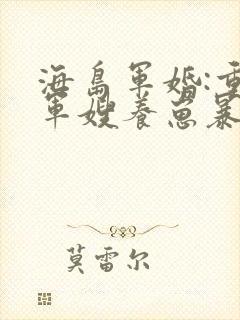 海岛军婚:重
军嫂养崽暴
莫雷尔